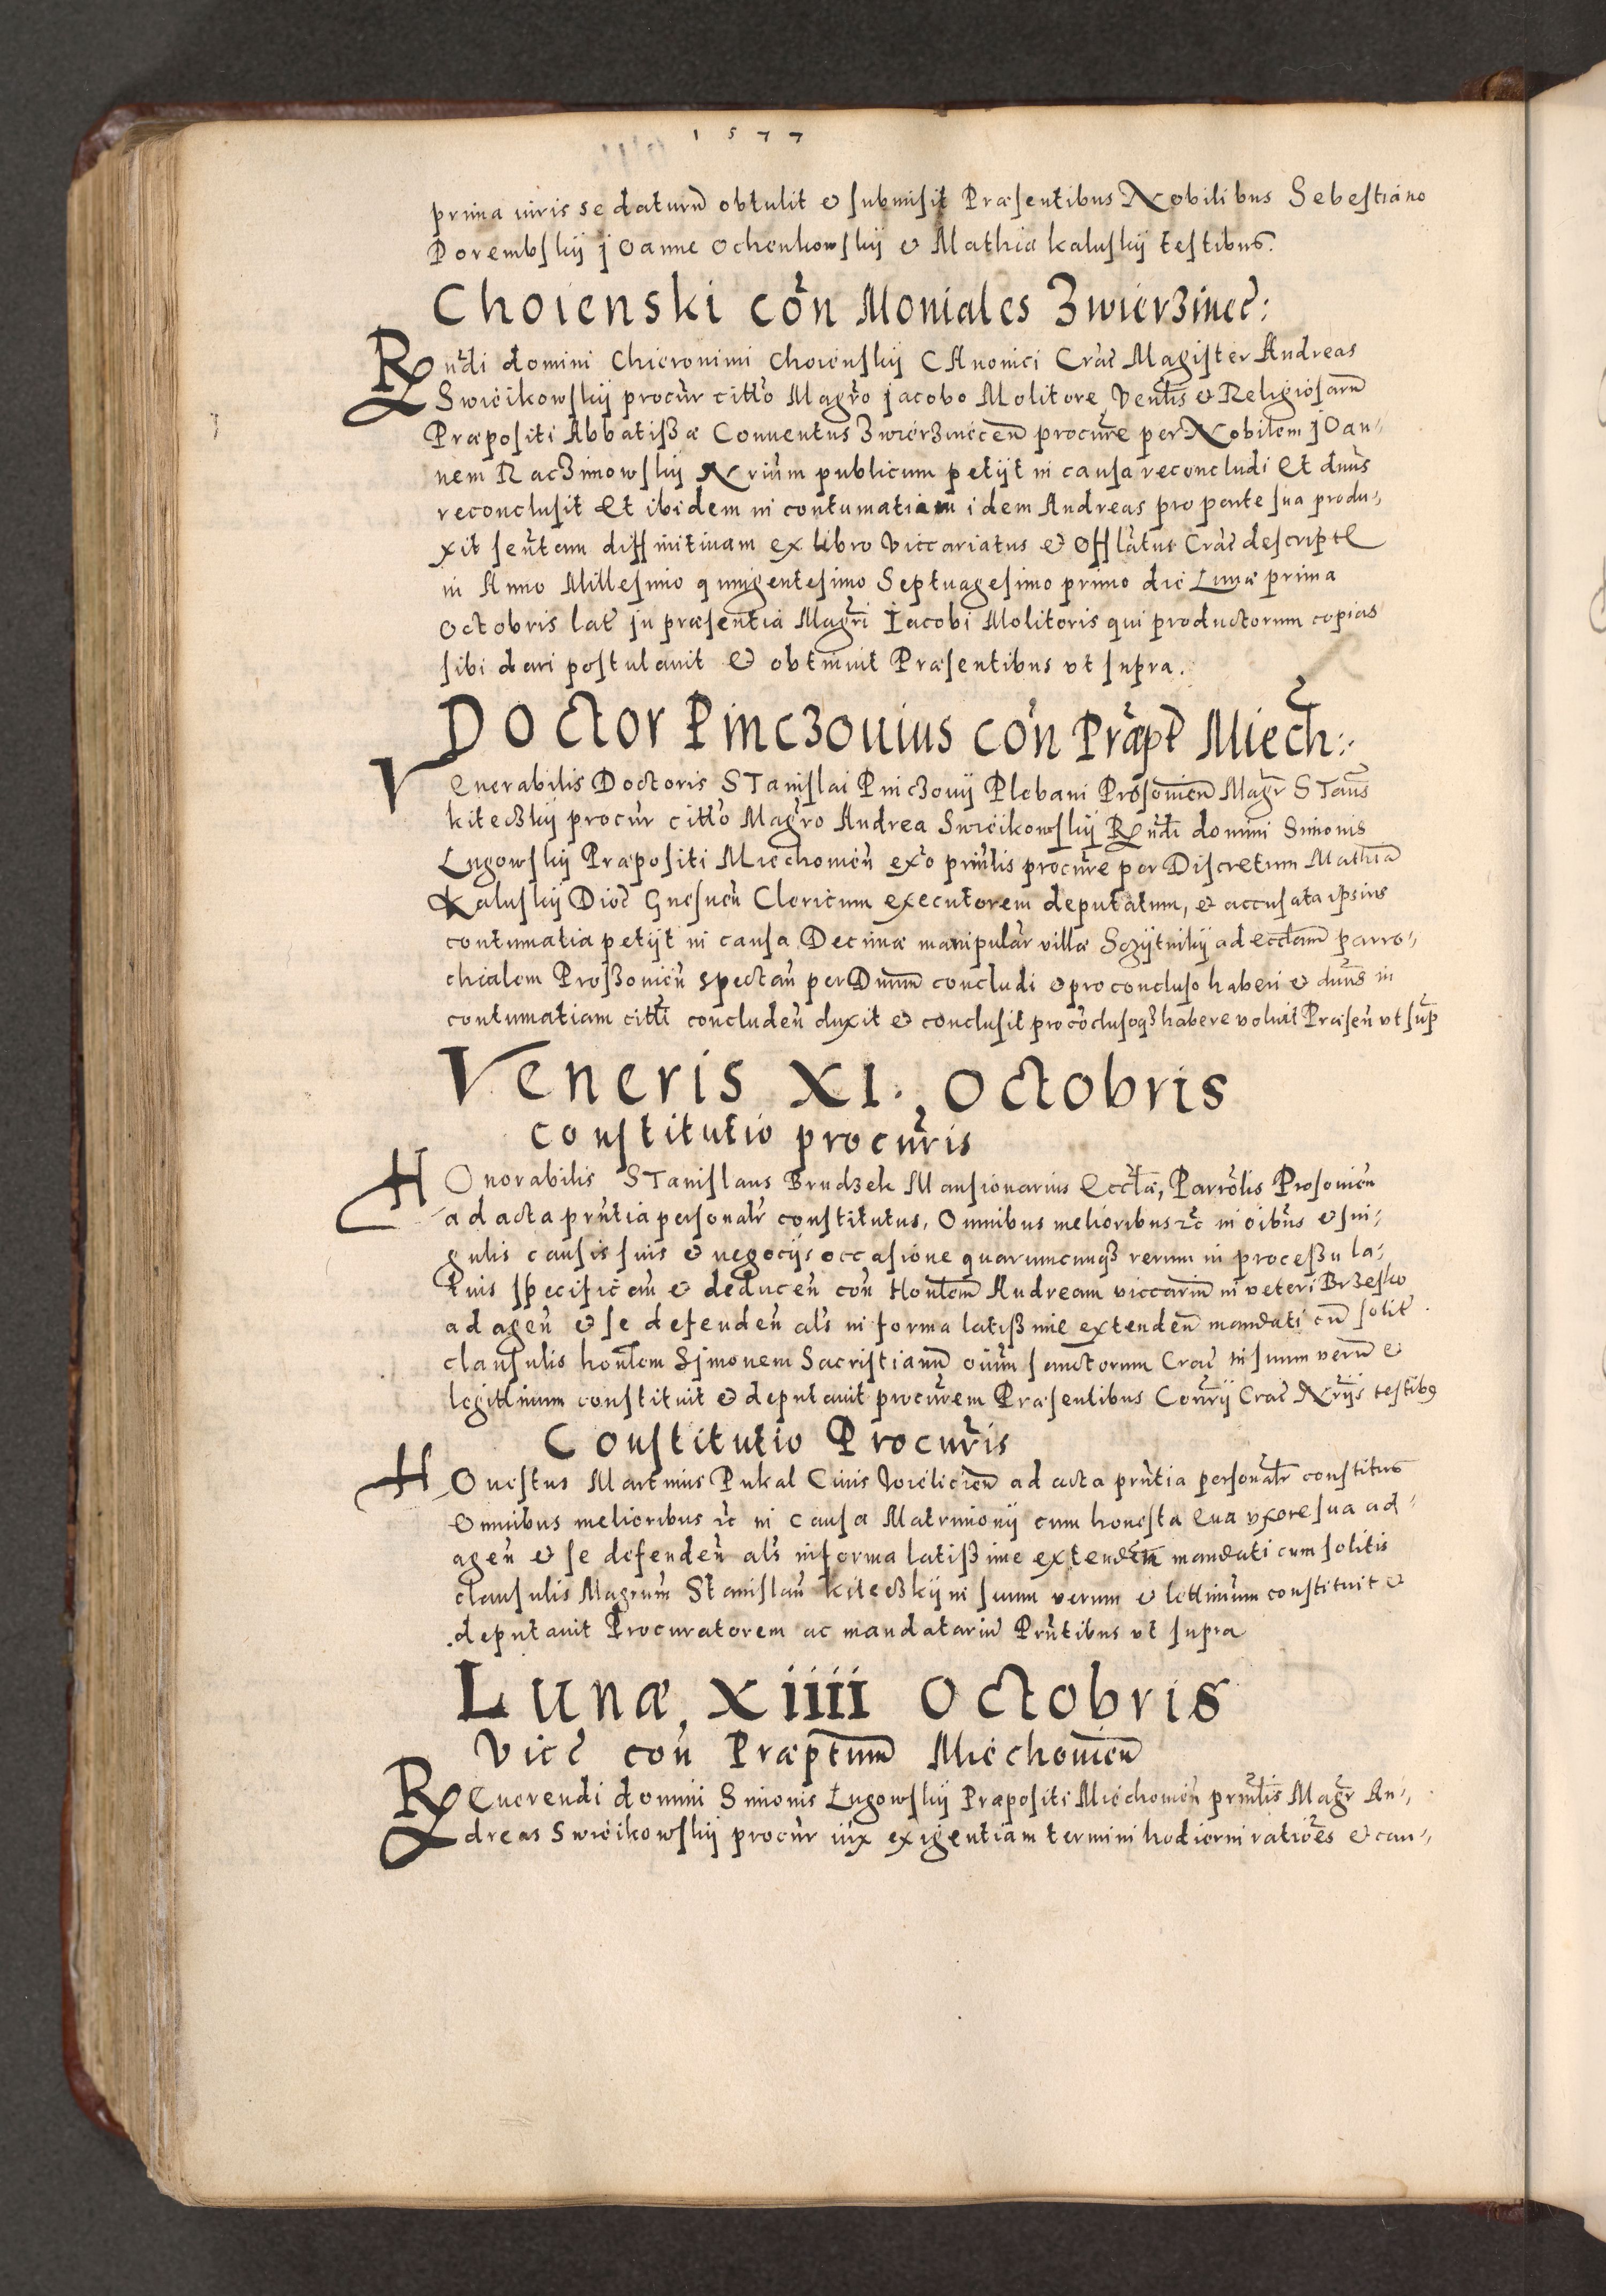 1577
prima iuris se daturũ obtulit et submisit Præsentibus Nobilibus Sebestiano
Porembskij joanne Ochenkowskij et Mathia kaluskij testibus.
Choienski cõn Moniales Zwierzinec:
Rñdi domini Chieronimi Choienskij CAnonici Crac̃ Magister Andreas
Swieikowskij procũr citto Magrõ jacobo Molitore Venlis et Religiosarũ
Præpositi Abbatissæ Conuentus Zwierzinecen̄ procure per Nobilem jOan-
nem Raczimowskij Nrium publicum petijt in causa reconcludi Et dñus
reconclusit Et ibidem in contumatiam idem Andreas pro parte sua produ-
xit senteñ diffinitiuam ex libro Viccariatus et Offlatus Crac̃ descript
in Anno Millesimo quingentesimo Septuagesimo primo die Lunæ prima
Octobris lat̃ jn præsentia Magri Iacobi Molitoris qui productorum copias
sibi dari postulauit et obtinuit Præsentibus vt supra.
Doctor Pinczouius cõn Præpt Miech:
Venerabilis Doctoris STanislai Pinczouij Plebani Prosouien̄ Magr STans
kiteczkij procũr citto Magro Andrea Swieikowskij Rñdi domini Simonis
Lugowskij Præpositi Miechouien̄ exo prinlis procure per Discretum Mathiã
Kaluskij Dioc̃ Gnesnen̄ Clericum executorem deputatum, et accusata ipsius
contumatia petijt in causa Decimæ manipular villæ Sczijtnikij ad eccłam parro-
chialem Proszouien̄ spectan̄ per Dnum concludi et pro concluso haberi et dnus in
contumatiam citti concluden̄ duxit et conclusit pro cõclusoqз habere voluit Præsen̄ vt sup
Veneris XI. Octobris
Constitutio procuris
HOnorabilis STanislaus Brudzek Mansionarius Eccłæ, Parrolis Prosouien̄
ad acta prñtia personalr constitutus, Omnibus melioribus etc̃ in oibus et sin-
gulis causis suis et negocijs occasione quarumcunqз rerum in processu la-
tius specifican̄ et deducen̄ con Honlem Andream viccarium in veteri Brzesko
ad agen̄ et se defenden̄ als in forma latissime extenden̄ mandati cũ solit̃
clausulis honlem Sjmonem Sacristianũ oium sanctorum Crac̃ in suum verũ et
legittimum constituit et deputauit procurem Præsentibus Conrij Crac̃ Nrijs testibus
Constitutio Procuris
HOnestus Martinus Pukal Ciuis Wielicien̄ ad acta prñtia personalr constitus
Omnibus melioribus etc̃ in Causa Matrimonij cum honesta Eua vxore sua ad
agen̄ et se defenden̄ als in forma latissime extenden̄ mandati cum solitis
clausulis Magrum Stanislaũ kiteczkij in suum verum et lettimum constituit et
deputauit Procuratorem ac mandatariũ Prñtibus vt supra
Lunæ Xiiii Octobris
Vicc̃ con Præptum Miechouien̄
REuerendi domini Simonis Lugowskij Præpositi Miechouien̄ prinlis Magr An-
dreas Swieikowskij procũr iux exigentiam termini hodierni rationes et cau-